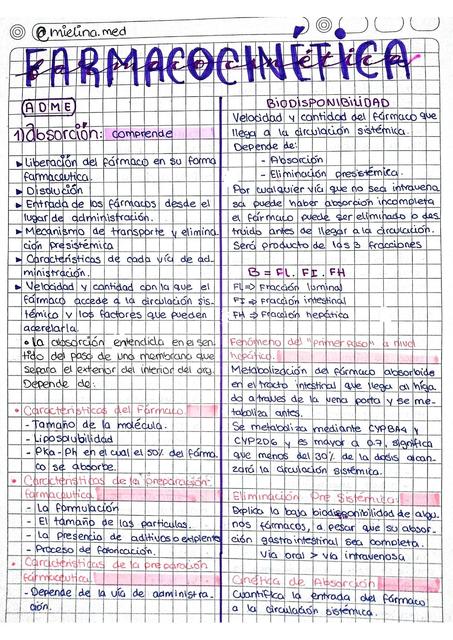 @mielina.med
FARMACOCINÉTICA
ADME
1) absorción: comprende
► Liberación del fármaco en su forma
farmaceutica.
► Disolución
► Entrada de los fármacos desde el
lugar de administración.
► Mecanismo de transporte y elimina
ción presistémica
► Características de cada vía de ad-
ministración.
► Velocidad y cantidad con la que el
fármaco accede a la circulación sis-
témica y los factores que pueden
acerelarla.
• la absorción entendida en el sen-
tido del paso de una membrana que
separa el exterior del interior del org.
Depende de:
• Características del Fármaco.
- Tamaño de la molécula.
- Liposolubilidad
- Pka - Ph en el cual el 50% del fárma
co se absorbe.
• Características de la preparación
farmaceutica
- La formulación
- El tamaño de las partículas.
- La presencia de aditivos o exipiente
- Proceso de fabricación.
• Características de la preparación
farmaceutica
- Depende de la vía de administra-
ción.
BIODISPONIBILIDAD
Velocidad y cantidad del fármaco que
llega a la circulación sistémica.
Depende de:
- Absorción
- Eliminación presistémica.
Por cualquier vía que no sea intraveno
sa puede haber absorción incompleta
el fármaco puede ser eliminado o des
truido antes de llegar a la circulación.
Será producto de las 3 fracciones
B = FL. FI. FH
FL => Fracción luminal
FI => Fracción intestinal
FH => Fracción hepática
Fenómeno del "primer paso" a nivel
hepático.
Metabolización del fármaco absorbido
en el tracto intestinal que llega al híga
do a través de la vena porta y se me-
taboliza antes.
Se metaboliza mediante CYP3A4 y
CYP2D6 y es mayor a 0.7, significa
que menos del 30% de la dosis alcan-
zará la circulación sistémica.
Eliminación Pre Sistémica:
Explica la baja biodisponibilidad de algu
nos fármacos, a pesar que su absor-
ción gastrointestinal sea completa.
Vía oral > vía intravenosa
Cinética de Absorción
Cuantifica la entrada del fármaco
a la circulación sistémica.